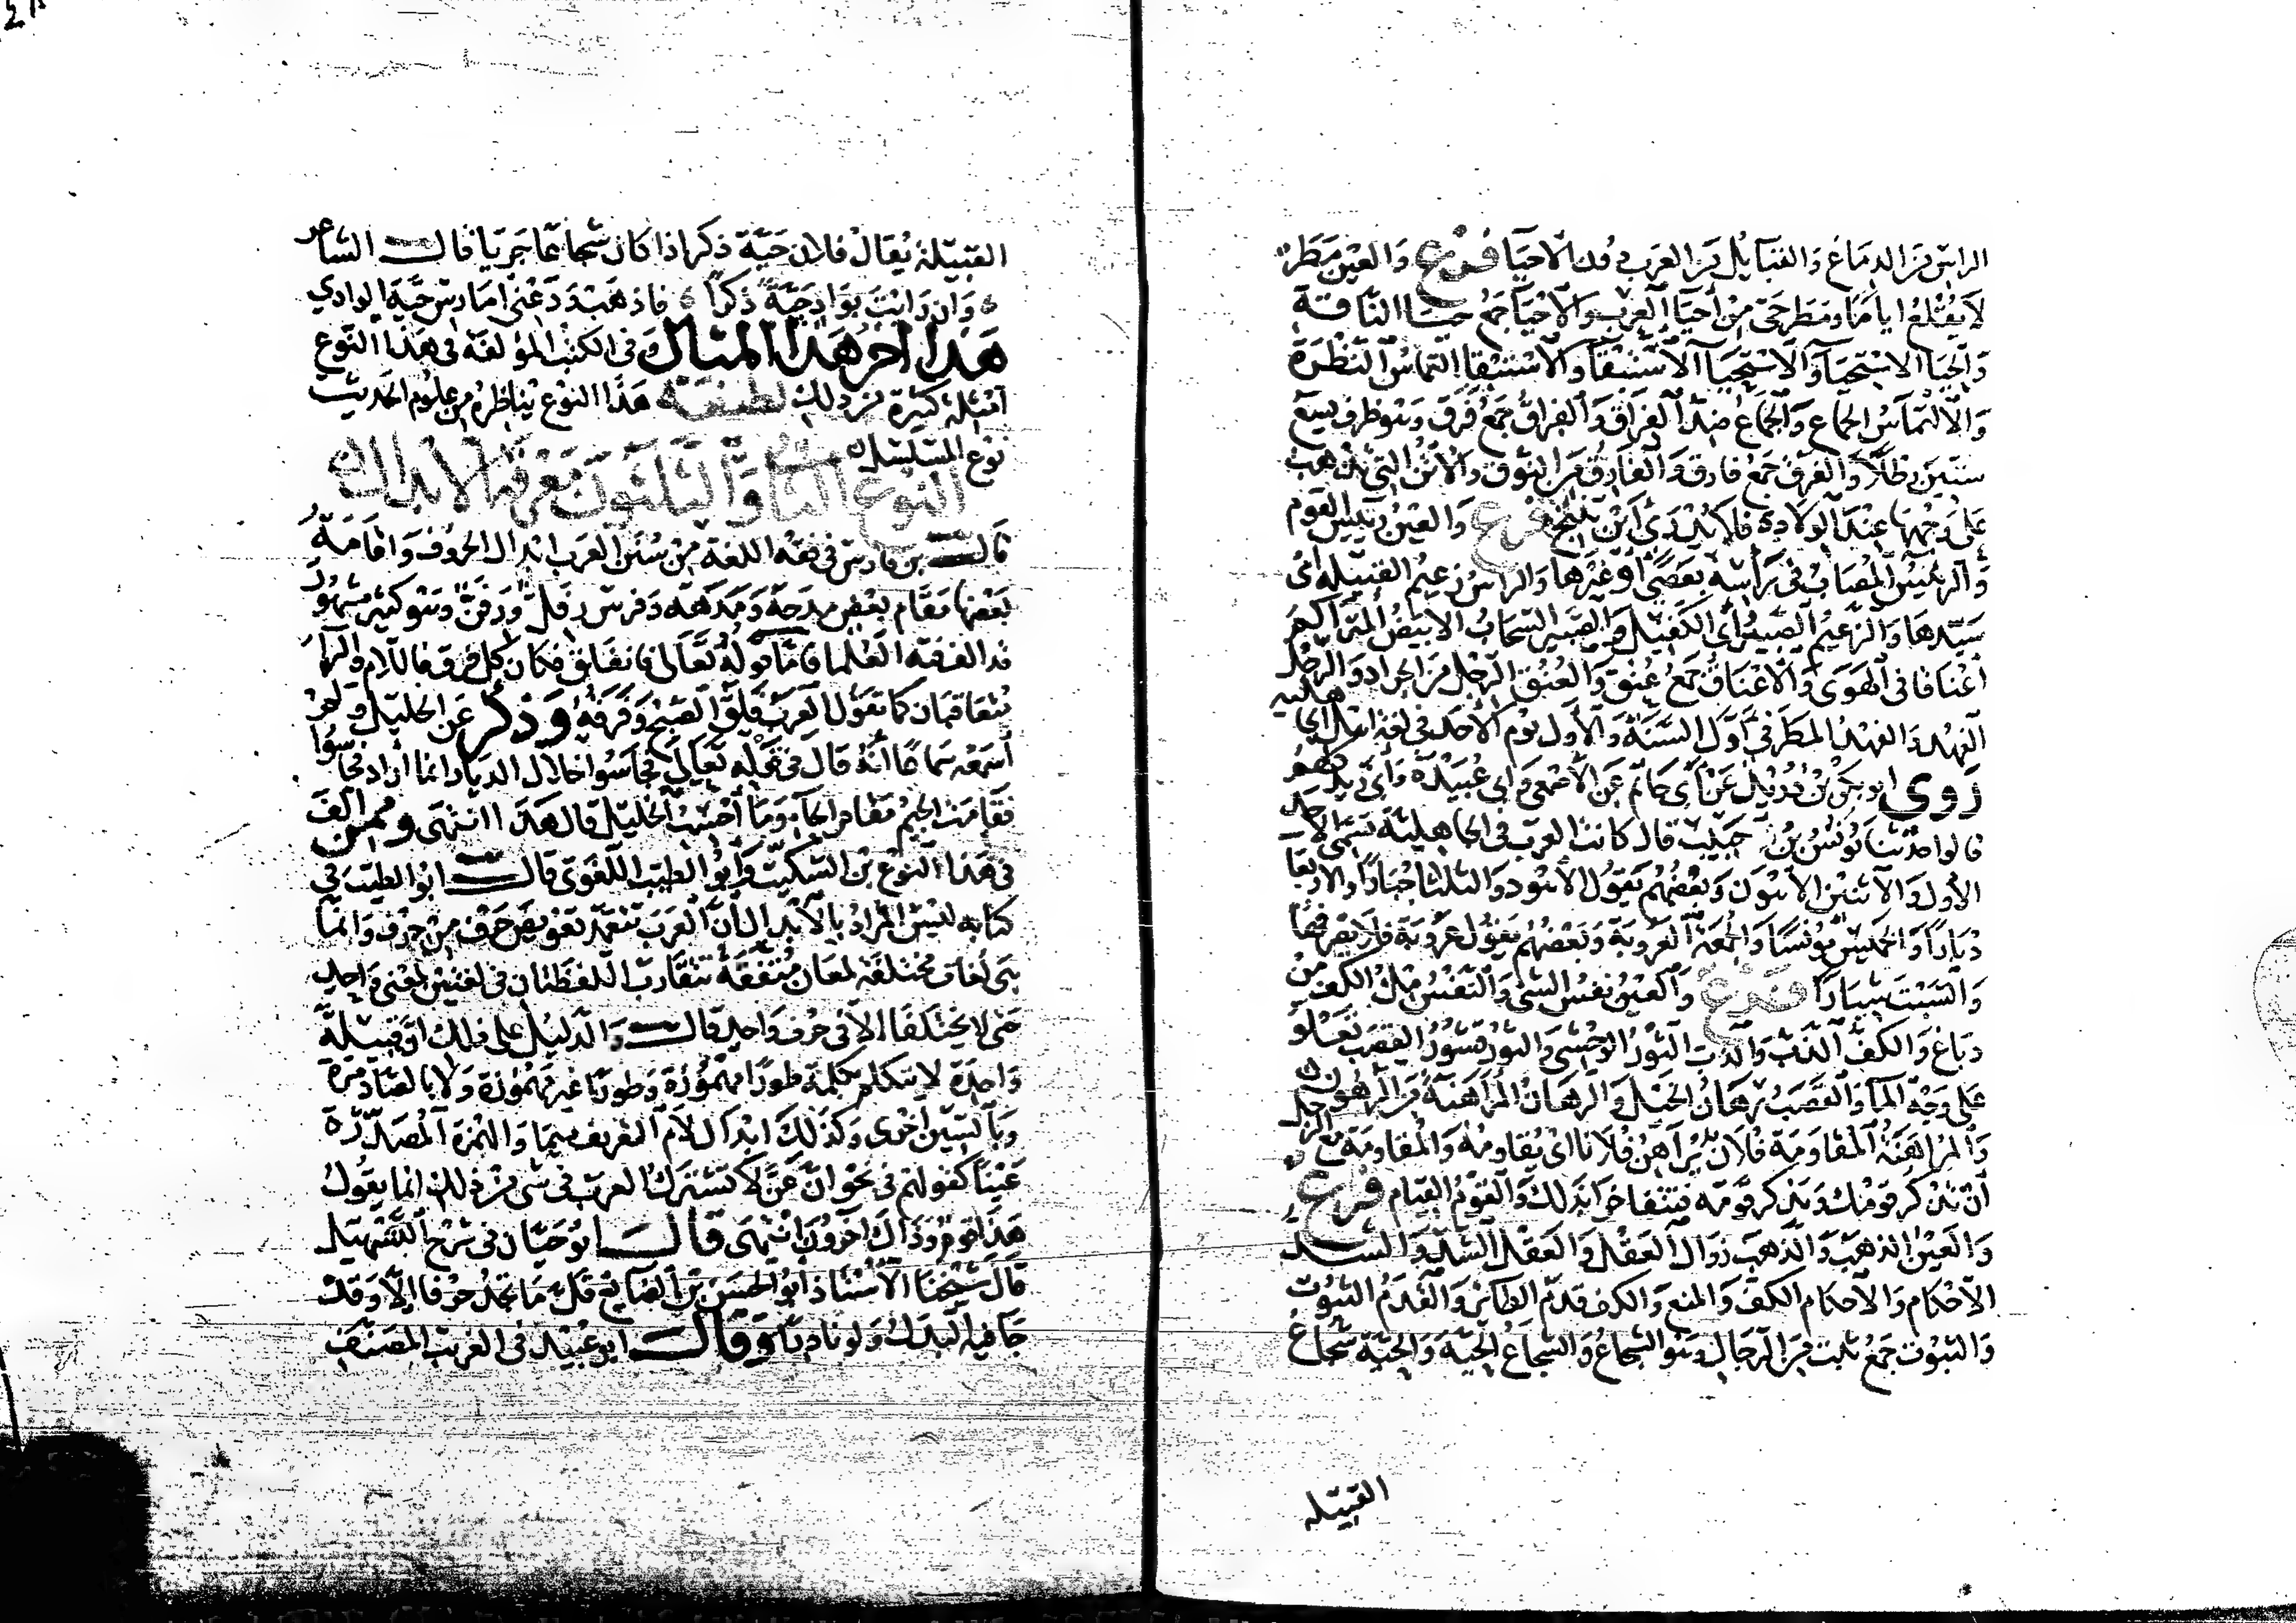 الراس من الدماغ والقبايل من العرب دون الاحيا فرع والعين مطر
لا يقلع اياما ومطر حي من احيا العرب والاحيا جمع حيا الناقة
والحيا الاستحيا والاستحيا الاستبقا والاستبقا التماس النظرة
والالتماس الجماع والجماع ضد الفراق والفراق جمع فرق وهو ظرف يسع
ستين رطلا والفرق جمع فارق والفارق من النوق والاتن التي تذهب
على وجهها عند الولادة فلا يدرى اين تنتج فرع والعين رئيس القوم
والرئيس المصاب في راسه بعصى او غيرها والراس زعيم القبيلة اى
سيدها والزعيم الصبير اى الكفيل والصبير السحاب الابيض المتراكم
اعناقا في الهوى والاعناق جمع عنق والعنق الرجل من الجراد والرجل
العهد والعهد المطر في اول السنة والاول يوم الاحد في لغة اهل الجاهلية
روى ابو بكر بن دريد عن ابى حاتم عن الاصمعي وابي عبيدة وابى زيد كلهم
قالوا حدثنا يونس بن حبيب قال كانت العرب في الجاهلية تسمى الاحد
الاول والاثنين الاهون وبعضهم يقول الاهود والثلثا جبارا والاربعا
دبارا والخميس مونسا والجمعة العروبة وبعضهم يقول عروبة فلا يصرفها
والسبت شيارا فرع والعين نفس الشى والنفس ملء الكف من
دباغ والكف الذب والذب الثور الوحشى والثور قشور القصب تعلو
على وجه الما والقصب رهان الخيل والرهان المراهنة من الرهون
والمراهنة المقاومة فلان يراهن فلانا اى يقاومه والمقاومة مع الرجل
ان تذكر قومك ويذكر قومه فتتفاخرا بذلك والقوم القيام فرع
والعين الذهب والذهب زوال العقل والعقل الشد والشد
الاحكام والاحكام الكف والمنع والكف قدم الطائر والقدم الثبوت
والثبوت جمع ثبت من الرجال وهو الشجاع والشجاع الحية والحية شجاع
القبيله
القبيلة يقال فلان حية ذكر اذا كان شجاعا جريا قال الشاعر
وان رايت بواد حية ذكرا فاذهب ودعنى امارس حية الوادي
هذا اخر هذا المثال وفى الكتب المؤلفة في هذا النوع
امثلة كثيرة من ذلك لطيفة هذا النوع يناظره من علوم الحديث
نوع المسلسل
النوع الثانى والثلثون معرفة الابدال
قال بن فارس في فقه اللغة من سنن العرب ابدال الحروف واقامة
بعضها مقام بعض مدحه ومدهه وفرس رفل ورفن وهو كثير مشهور
قد الف فيه العلما فاما قوله تعالى فانفلق فكان كل فرق فاللام والرا
يتعاقبان كما تقول العرب فلق الصبح وفرقه وذكر عن الخليل ولم
اسمعه سماعا انه قال في قوله تعالى فجاسوا خلال الديار انما اراد فحاسوا
فقامت الجيم مقام الحاء وما احسب الخليل قال هذا انتهى وممن الف
في هذا النوع بن السكيت وابو الطيب اللغوى قال ابو الطيب في
كتابه ليس المراد بالابدال ان العرب تتعمد تعويض حرف من حرف وانما
هى لغات مختلفة لمعان متفقة تتقارب اللفظتان في لغتين لمعنى واحد
حتى لا يختلفا الا في حرف واحد قال والدليل على ذلك ان قبيلة
واحدة لا تتكلم بكلمة طورا مهموزة وطورا غير مهموزة ولا بالصاد مرة
وبالسين اخرى وكذلك ابدال لام التعريف ميما والهمزة المصدرة
عينا كقولهم في نحو ان عن لا تشترك العرب في شى من ذلك انما يقول
هذا قوم وذاك اخرون انتهى قال ابو حيان في شرح التسهيل
قال شيخنا الاستاذ ابو الحسن بن الضايع قل ما تجد حرفا الا وقد
جا فيه البدل ولو نادرا وقال ابو عبيد في الغريب المصنف